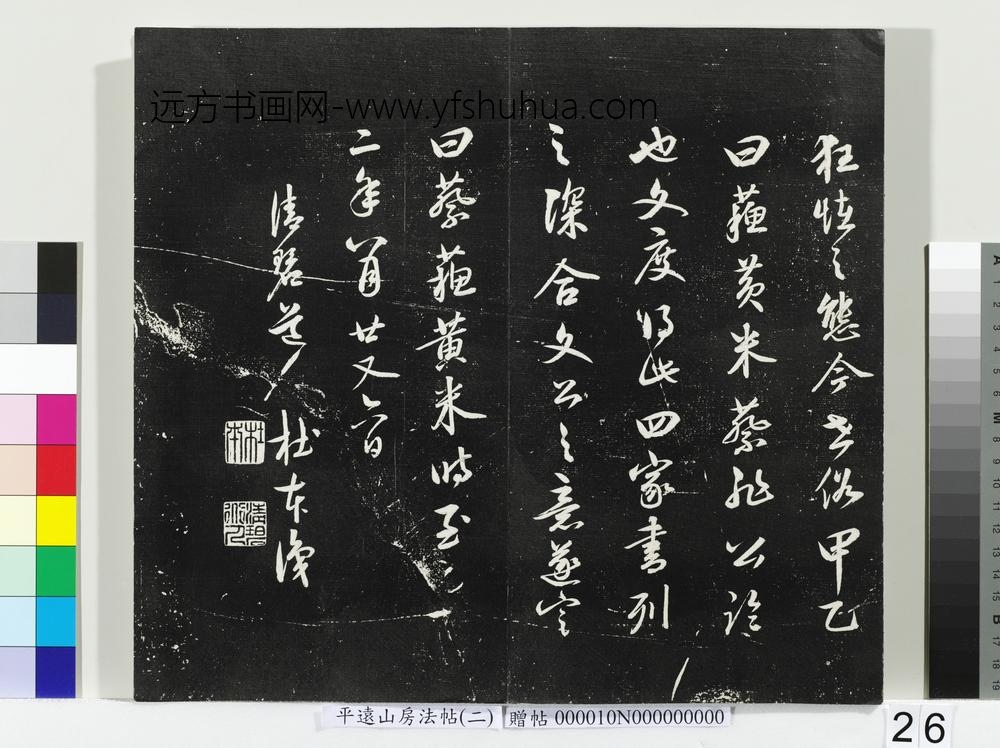 狂怪之態今世俗甲乙
曰蘓黄米蔡非公論
也文度得此四家書列
之深合文公之意遂定
曰蔡蘓黄米時至元
二年八月廿又六日
清碧道人杜本識
杜本
清碧
远方书画网-www.yfshuhua.com
平遠山房法帖(二)
贈帖 000010N000000000
26